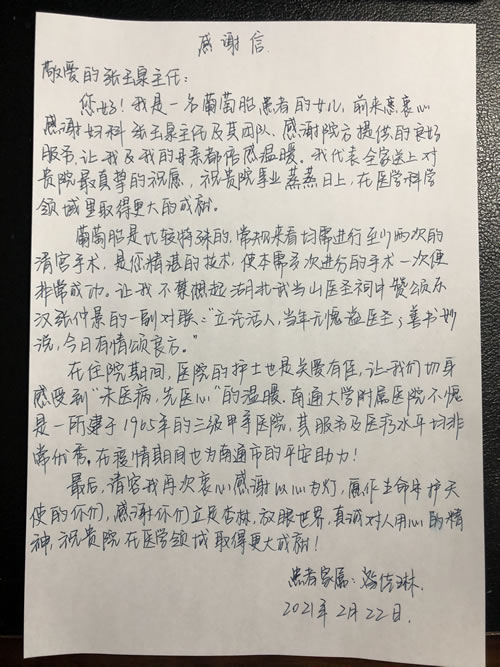 感谢信
敬爱的张玉泉主任：
您好！我是一名葡萄胎患者的女儿，前来衷心
感谢妇科张玉泉主任及其团队、感谢院方提供的良好
服务，让我及我的母亲都倍感温暖。我代表全家送上对
贵院最真挚的祝愿，祝贵院事业蒸蒸日上，在医学科学
领域里取得更大的成就。
葡萄胎是比较特殊的，常规来看均需进行至少两次的
清宫手术，是您精湛的技术，使本需多次进行的手术一次便
非常成功。让我不禁想起湖北武当山医圣祠中赞颂东
汉张仲景的一副对联："立论活人，当年无愧谥医圣；善书妙
说，今日有情颂良方。"
在住院期间，医院的护士也是关爱有佳，让我们切身
感受到"未医病，先医心"的温暖。南通大学附属医院不愧
是一所建于1911年的三级甲等医院，其服务及医疗水平均非
常优秀。在疫情期间也为南通市的平安助力！
最后，请容我再次衷心感谢以心为灯，愿作生命守护天
使的你们，感谢你们立足杏林，放眼世界，真诚对人用心的精
神，祝贵院在医学领域取得更大成就！
患者家属：
2021年2月22日.